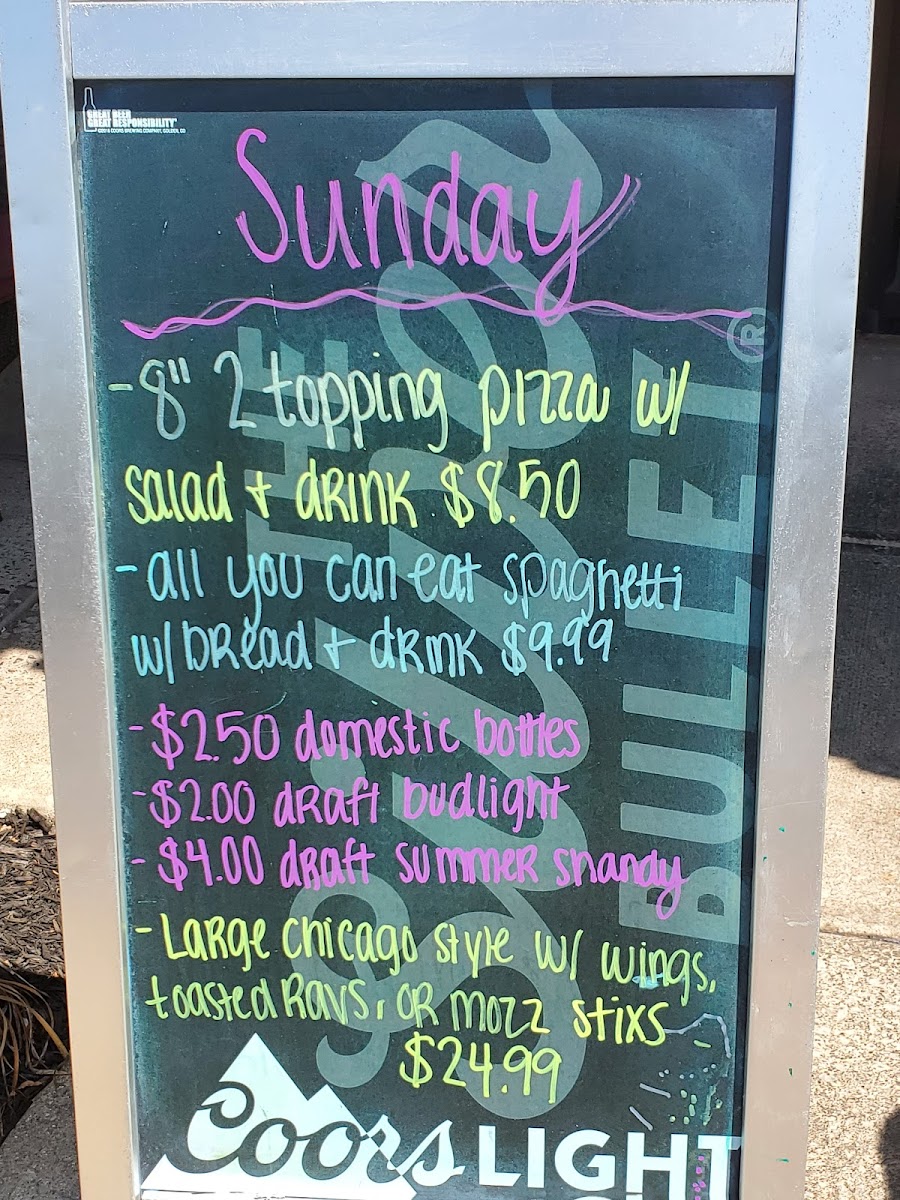 GREAT BEER
GREAT RESPONSIBILITY
©2014 COORS BREWING COMPANY, GOLDEN, CO
Sunday
- 8" 2 topping pizza w/
salad + drink $8.50
- all you can eat spaghetti
w/ bread + drink $9.99
- $2.50 domestic bottles
- $2.00 draft budlight
- $4.00 draft summer shandy
- Large chicago style w/ wings,
toasted Ravs, or mozz stixs
$24.99
THE
Silver
BULLET®
Coors LIGHT